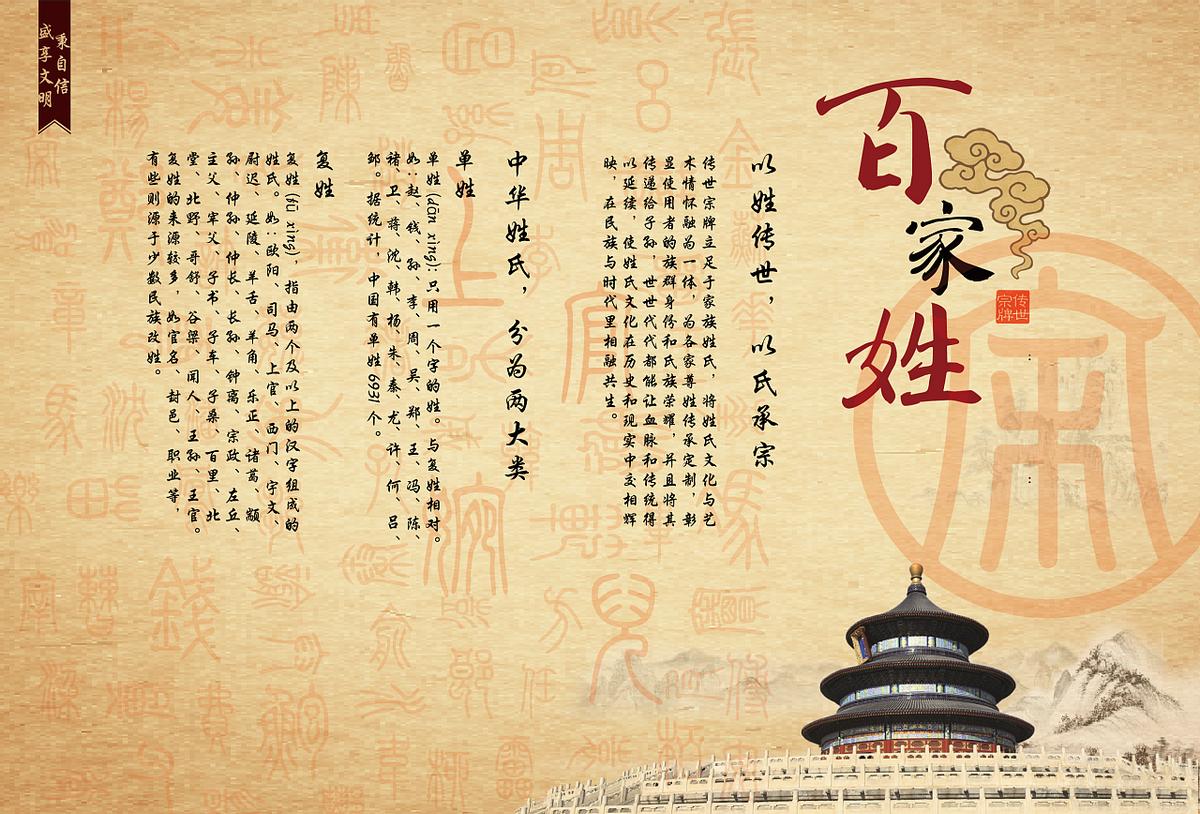 百家姓
传世
宗牌
以姓传世，以氏承宗
传世宗牌立足于家族姓氏，将姓氏文化与艺
术情怀融为一体，为各家尊姓传承定制，彰
显使用者的族群身份和氏族荣耀，并且将其
传递给子孙，世世代代都能让血脉和传统得
以延续，使姓氏文化在历史和现实中交相辉
映，在民族与时代里相融共生。
中华姓氏，分为两大类
单姓
单姓(dān xìng)：只用一个字的姓。与复姓相对。
如：赵、钱、孙、李、周、吴、郑、王、冯、陈、
褚、卫、蒋、沈、韩、杨、朱、秦、尤、许、何、吕、
邹。据统计，中国有单姓6931个。
复姓
复姓(fù xìng)，指由两个及以上的汉字组成的
姓氏。如：欧阳、司马、上官、西门、宇文、
尉迟、延陵、羊舌、羊角、乐正、诸葛、颛
孙、仲孙、仲长、长孙、钟离、宗政、左丘、
主父、宰父、子书、子车、子桑、百里、北
堂、北野、哥舒、谷梁、闻人、王孙、王官。
复姓的来源较多，如官名、封邑、职业等，
有些则源于少数民族改姓。
秉自信
盛享文明